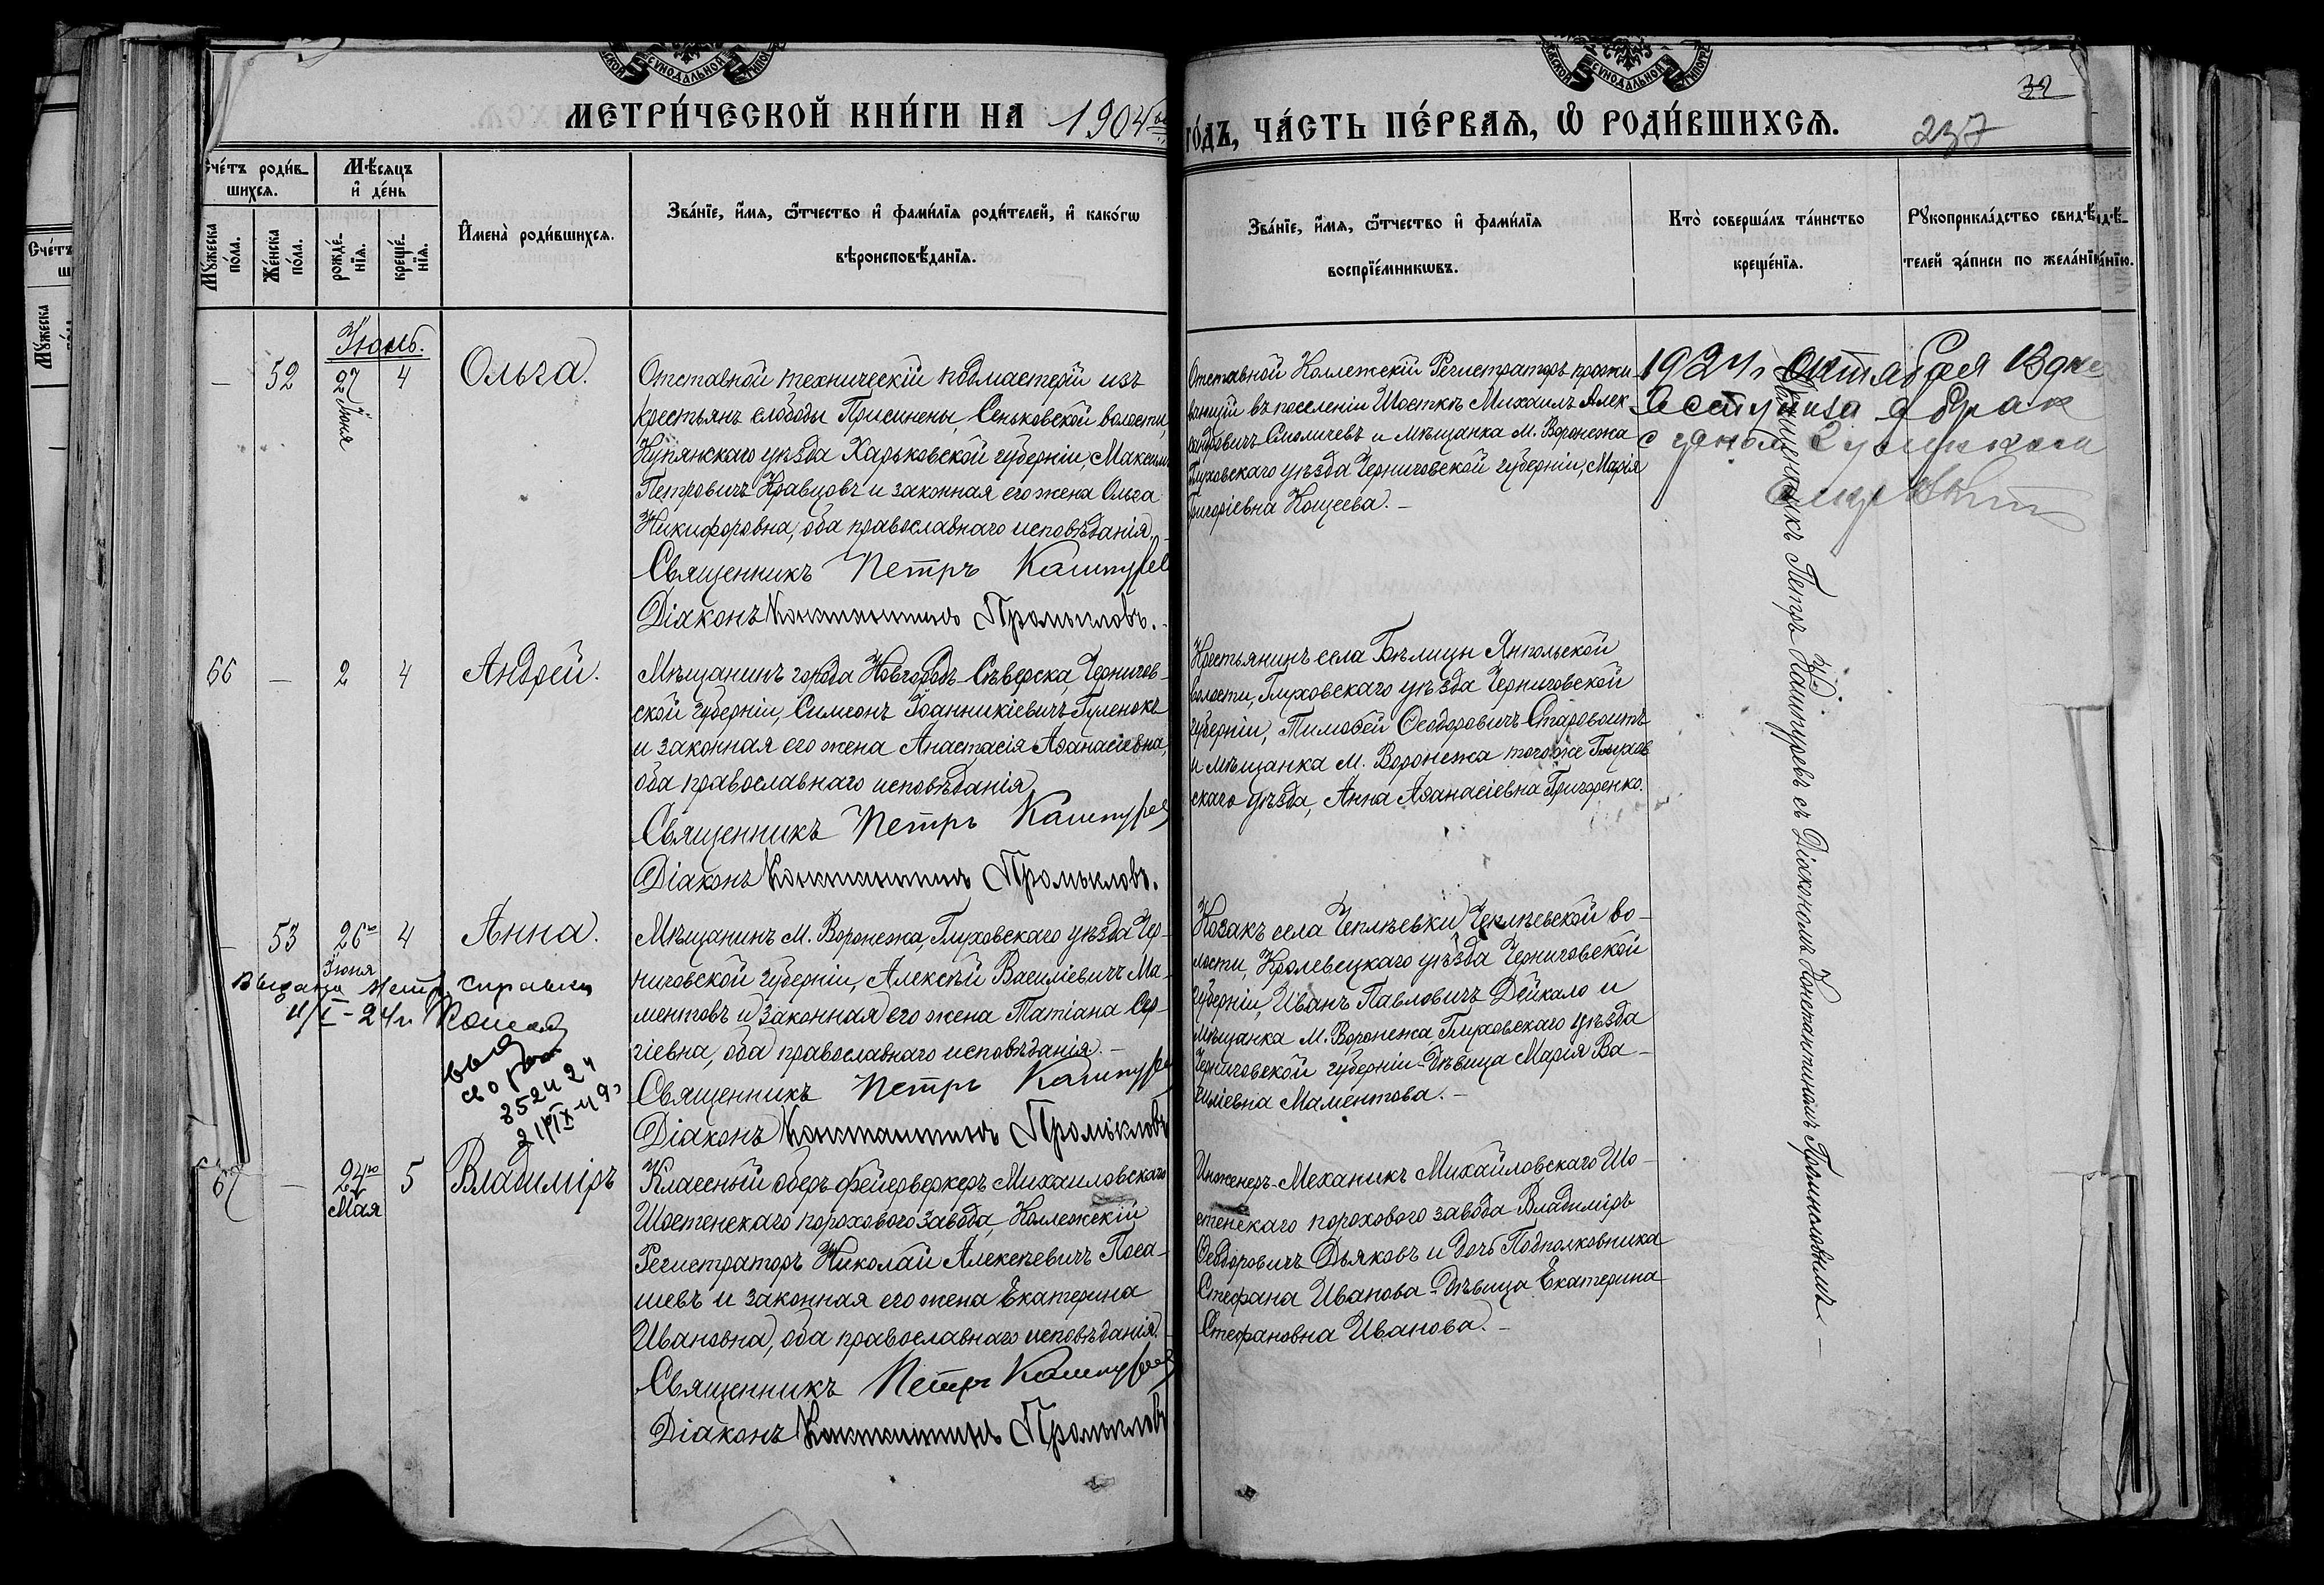 МЕТРИ́ЧЕСКОЙ КНИ́ГИ НА 1904ый
Сче́тъ роди́в-
шихся.
Мѣ́сяцъ
и҆ де́нь
И҆мена̀ роди́вшихся.
Зва́нїе, и҆́мя, ѻ҆́тчество и҆ фами́лїя роди́телей, и҆ како́гѡ
вѣроисповѣ́данїя.
Мꙋ́жеска
по́ла.
Же́нска
по́ла.
рожде́-
нїя.
креще́-
нїя.
Іюль.
— 52 27 Іюня 4 Ольга.
Отставной техническій подмастерій изъ
крестьянъ слободы Присинены, Сеньковской волости,
Купянскаго уѣзда Харьковской губерніи, Максимъ
Петровичъ Кравцовъ и законная его жена Ольга
Никифоровна, оба православнаго исповѣданія.
Священникъ Петръ
Діаконъ Константинъ
66 — 2 4 Андрей.
Мѣщанинъ города Новгородъ-Сѣверска, Чернигов-
ской губерніи, Симеонъ Іоанникіевичъ Гуленокъ
и законная его жена Анастасія Аѳанасіевна,
оба православнаго исповѣданія.
Священникъ Петръ
Діаконъ Константинъ
— 53 26го Іюня 4 Анна.
Мѣщанинъ М. Воронежа, Глуховскаго уѣзда Чер-
ниговской губерніи, Алексѣй Василіевичъ Ма-
ментовъ и законная его жена Татіана Сер-
гіевна, оба православнаго исповѣданія. —
Священникъ Петръ
Діаконъ Константинъ
Выдана метр. справка
67 — 24го Мая 5 Владиміръ
Классный оберъ-фейерверкеръ Михайловскаго
Шостенскаго пороховаго завода, Коллежскій
Регистраторъ Николай Алексѣевичъ Поса-
шевъ и законная его жена Екатерина
Ивановна, оба православнаго исповѣданія.
Священникъ Петръ
Діаконъ Константинъ
ГО́ДЪ, ЧА́СТЬ ПЕ́РВАЯ, Ѡ҆ РОДИ́ВШИХСЯ.
32
237
Зва́нїе, и҆́мя, ѻ҆́тчество и҆ фами́лїя
воспрїе́мникѡвъ.
Кто̀ соверша́лъ та́инство
креще́нїя.
Рꙋкоприкла́дство свидѣ́-
телей за́писи по жела́нїю.
Отставной Коллежскій Регистраторъ прожи-
вающій въ поселеніи Шосткѣ Михаилъ Алек-
сандровичъ Смоличевъ и Мѣщанка М. Воронежа
Глуховскаго уѣзда Черниговской губерніи, Марія
Григоріевна Кощеева. —
1924 г. октября 13 дня
вступила в брак
Крестьянинъ села Бѣлицы Ямпольской
волости, Глуховскаго уѣзда Черниговской
губерніи, Тимоѳей Ѳеодоровичъ Старовоитъ
и мѣщанка М. Воронежа того же Глухов
скаго уѣзда, Анна Аѳанасіевна Григоренко.
Козакъ села Чеплѣевки, Чеплѣевской во-
лости, Кролевецкаго уѣзда Черниговской
губерніи, Иванъ Павловичъ Дейкало и
мѣщанка М. Воронежа Глуховскаго уѣзда
Черниговской губерніи дѣвица Марія Ва-
силіевна Маментова. —
Инженеръ-Механикъ Михайловскаго Шо-
стенскаго пороховаго завода Владиміръ
Ѳеодоровичъ Дьяковъ и дочь Подполковника
Стефана Иванова дѣвица Екатерина
Стефановна Иванова. —
Священникъ Петръ Каштуревъ съ Діакономъ Константиномъ